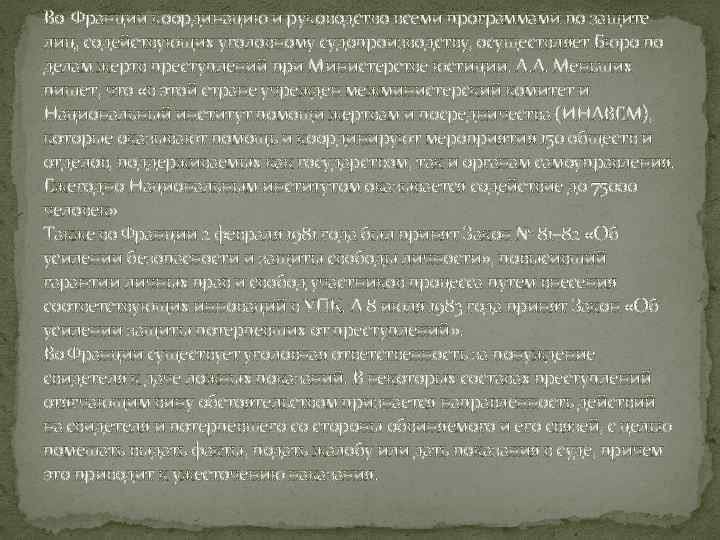 Во Франции координацию и руководство всеми программами по защите
лиц, содействующих уголовному судопроизводству, осуществляет Бюро по
делам жертв преступлений при Министерстве юстиции. А.А. Меньших
пишет, что «в этой стране учрежден межминистерский комитет и
Национальный институт помощи жертвам и посредничества (ИНАВЕМ),
которые оказывают помощь и координируют мероприятия 150 обществ и
отделов, поддерживаемых как государством, так и органам самоуправления.
Ежегодно Национальным институтом оказывается содействие до 75000
человек»
Также во Франции 2 февраля 1981 года был принят Закон № 81–82 «Об
усилении безопасности и защиты свободы личности», повысивший
гарантии личных прав и свобод участников процесса путем внесения
соответствующих инноваций в УПК. А 8 июля 1983 года принят Закон «Об
усилении защиты потерпевших от преступлений».
Во Франции существует уголовная ответственность за понуждение
свидетеля к даче ложных показаний. В некоторых составах преступлений
отягчающим вину обстоятельством признается направленность действий
на свидетеля и потерпевшего со стороны обвиняемого и его связей, с целью
помешать выдать факты, подать жалобу или дать показания в суде, причем
это приводит к ужесточению наказания.